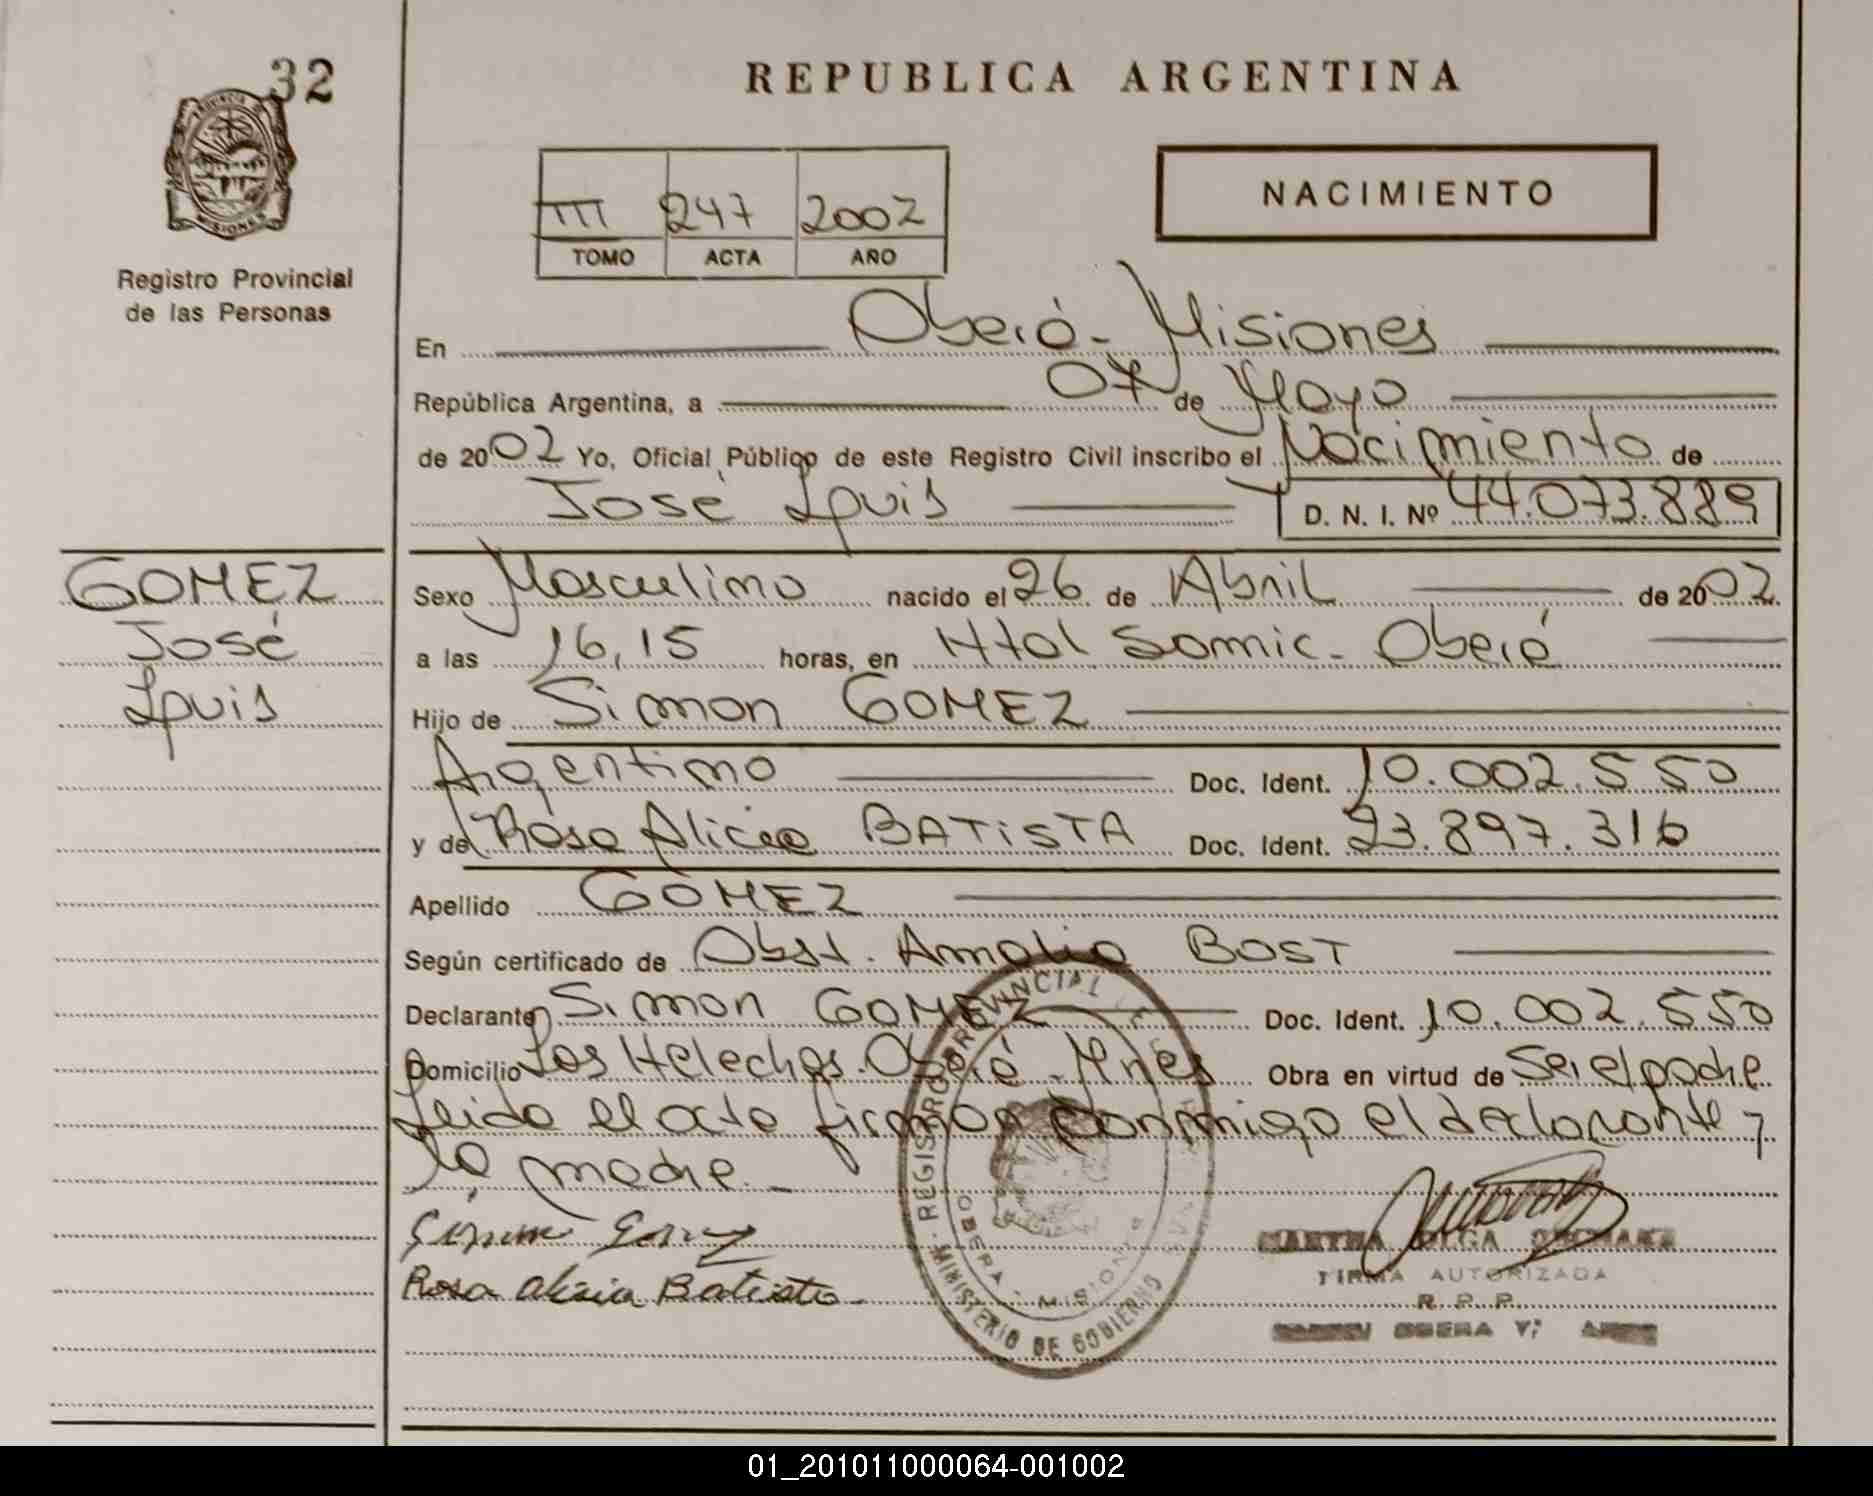 32
REPUBLICA ARGENTINA
PROVINCIA DE
MISIONES
Registro Provincial
de las Personas
III 247 2002
TOMO ACTA AÑO
NACIMIENTO
En Oberá - Misiones
República Argentina, a 07 de Mayo
de 2002 Yo, Oficial Público de este Registro Civil inscribo el Nacimiento de
José Luis D. N. I. Nº 44.073.889
GOMEZ
José
Luis
Sexo Masculino nacido el 26 de Abril de 2002
a las 16,15 horas, en Htal Samic - Oberá
Hijo de Simon GOMEZ
Argentino Doc. Ident. 10.002.550
y de Rosa Alicia BATISTA Doc. Ident. 23.897.316
Apellido GOMEZ
Según certificado de Obst. Amalia BOST
Declarante Simon GOMEZ Doc. Ident. 10.002.550
Domicilio Los Helechos. Oberá - Mnes Obra en virtud de Ser el padre
Leida el acta firman conmigo el declarante y
la madre. -
Simon Gomez
Rosa alicia Batista
REGISTRO PROVINCIAL DE LAS
MINISTERIO DE GOBIERNO
OBERA - MISIONES
MARTHA OLGA
FIRMA AUTORIZADA
R. P. P.
OBERA
01_201011000064-001002